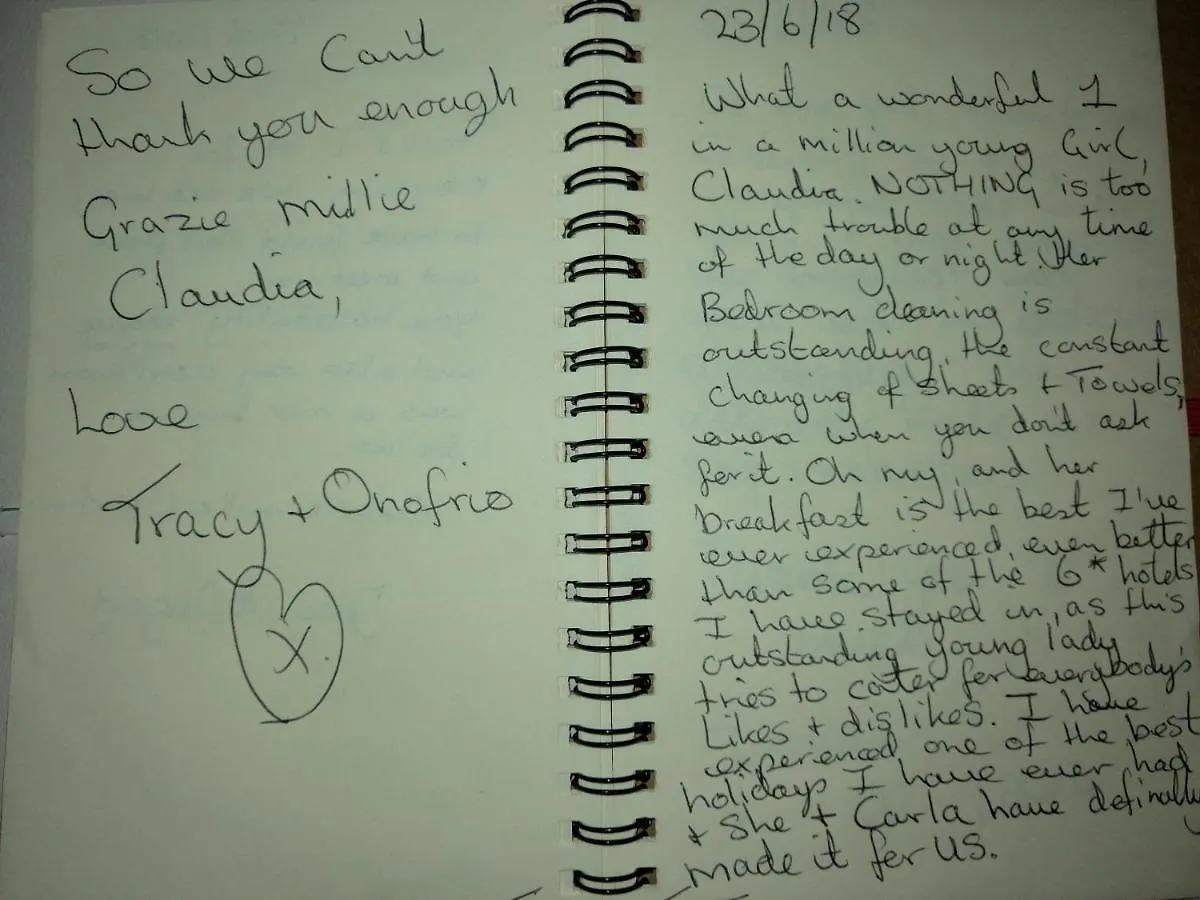 So we Can't
thank you enough
Grazie millie
Claudia,
Love
Tracy + Onofrio
X.
23/6/18
What a wonderful 1
in a million young Girl,
Claudia. NOTHING is too
much trouble at any time
of the day or night. Her
Bedroom cleaning is
outstanding, the constant
changing of sheets + Towels,
even when you don't ask
for it. Oh my, and her
breakfast is the best I've
ever experienced, even better
than some of the 6* hotels
I have stayed in, as this
outstanding young lady
tries to cater for everybody's
Likes + dislikes. I have
experienced one of the best
holidays I have ever had
+ She + Carla have definally
made it for us.